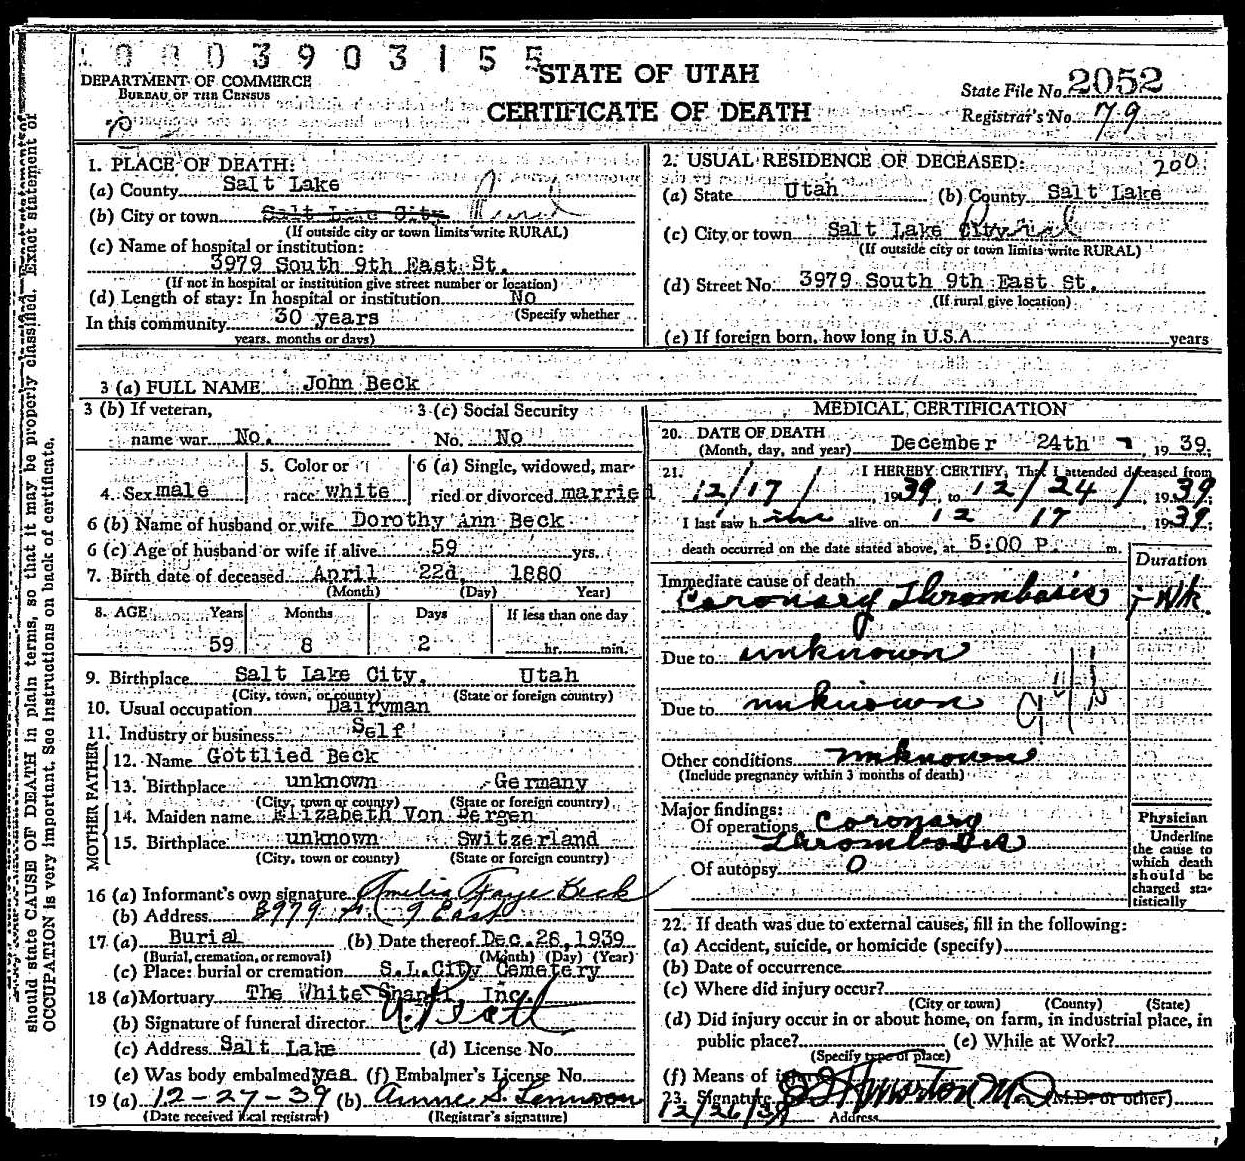 0003903155
STATE OF UTAH
CERTIFICATE OF DEATH
DEPARTMENT OF COMMERCE
BUREAU OF THE CENSUS
State File No. 2052
Registrar's No. 79
1. PLACE OF DEATH:
(a) County Salt Lake
(b) City or town Salt Lake City Rural
(If outside city or town limits write RURAL)
(c) Name of hospital or institution:
3979 South 9th East St.
(If not in hospital or institution give street number or location)
(d) Length of stay: In hospital or institution No
(Specify whether
In this community 30 years
years, months or days)
2. USUAL RESIDENCE OF DECEASED: 200
(a) State Utah (b) County Salt Lake
(c) City or town Salt Lake City Rural
(If outside city or town limits write RURAL)
(d) Street No. 3979 South 9th East St.
(If rural give location)
(e) If foreign born, how long in U.S.A. years
3 (a) FULL NAME John Beck
3 (b) If veteran, name war No.
3 (c) Social Security No. No
4. Sex male
5. Color or race white
6 (a) Single, widowed, married or divorced married
6 (b) Name of husband or wife Dorothy Ann Beck
6 (c) Age of husband or wife if alive 59 yrs.
7. Birth date of deceased April 22d, 1880
(Month) (Day) Year)
8. AGE Years Months Days If less than one day
59 8 2 hr. min.
9. Birthplace Salt Lake City, Utah
(City, town, or county) (State or foreign country)
10. Usual occupation Dairyman
11. Industry or business Self
FATHER
12. Name Gottlied Beck
13. Birthplace unknown Germany
(City, town or county) (State or foreign country)
MOTHER
14. Maiden name Elizabeth Von Bergen
15. Birthplace unknown Switzerland
(City, town or county) (State or foreign country)
16 (a) Informant's own signature Amelia Faye Beck
(b) Address 3979 So. 9 East
17 (a) Burial (b) Date thereof Dec. 28, 1939
(Burial, cremation, or removal) (Month) (Day) (Year)
(c) Place: burial or cremation S.L.City Cemetery
18 (a) Mortuary The White Inc.
(b) Signature of funeral director
(c) Address Salt Lake (d) License No.
(e) Was body embalmed yes (f) Embalmer's License No.
19 (a) 12-27-39 (b) Anne S.
(Date received local registrar) (Registrar's signature)
MEDICAL CERTIFICATION
20. DATE OF DEATH
(Month, day, and year) December 24th, 1939.
21. I HEREBY CERTIFY, That I attended deceased from
12/17/, 1939 to 12/24/, 1939;
I last saw him alive on 12 17, 1939;
death occurred on the date stated above, at 5:00 P. m.
Duration
Immediate cause of death
Coronary Thrombosis 1 Wk.
Due to unknown
Due to unknown
Other conditions unknown
(Include pregnancy within 3 months of death)
Major findings:
Of operations Coronary
Thrombosis
Of autopsy 0
Physician
Underline
the cause to
which death
should be
charged sta-
tistically
22. If death was due to external causes, fill in the following:
(a) Accident, suicide, or homicide (specify)
(b) Date of occurrence
(c) Where did injury occur?
(City or town) (County) (State)
(d) Did injury occur in or about home, on farm, in industrial place, in
public place? (e) While at Work?
(Specify type of place)
(f) Means of injury
23. Signature M.D. (M.D. or other)
12/26/39 Address
should state CAUSE OF DEATH in plain terms, so that it may be properly classified. Exact statement of
OCCUPATION is very important. See instructions on back of certificate.